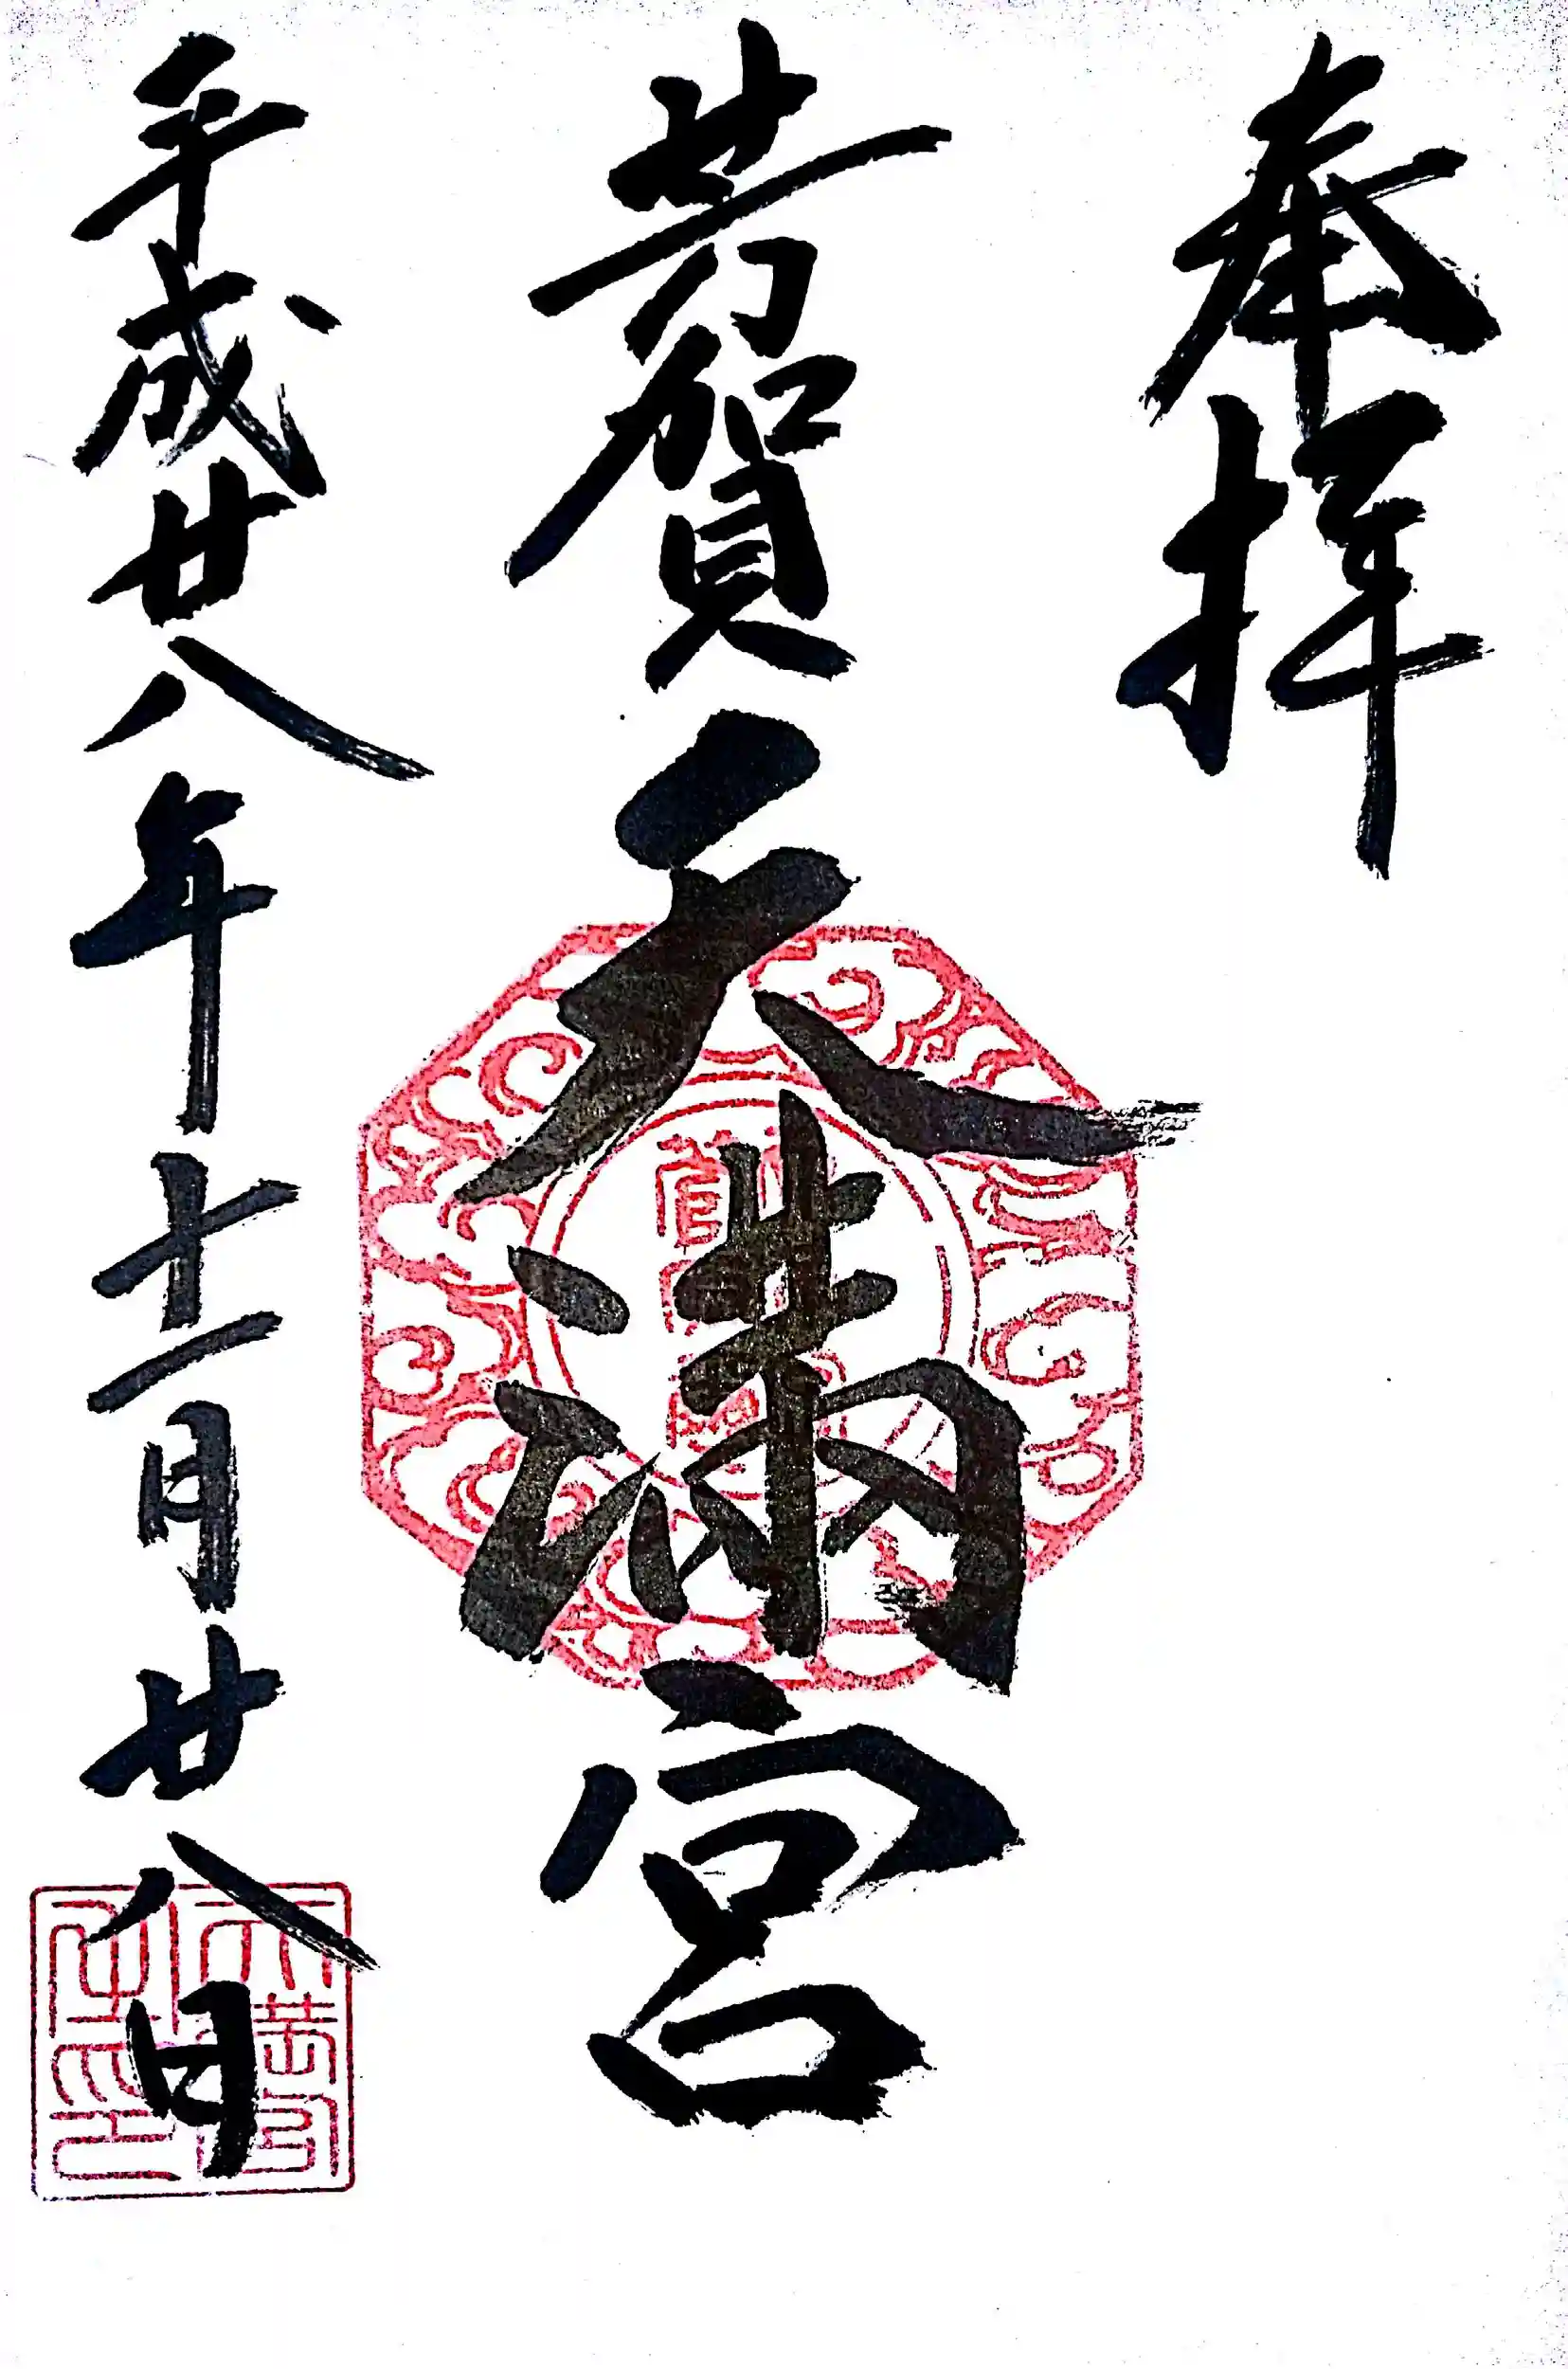 奉拝
芳賀天満宮
平成廿八年十二月廿八日